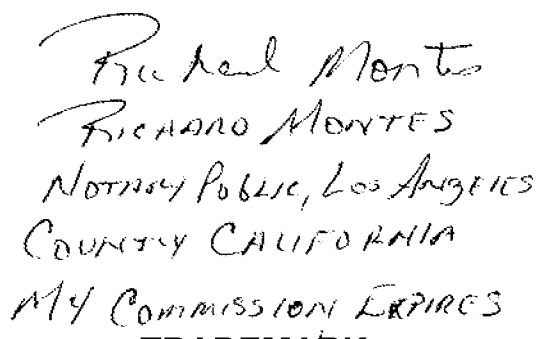 Richard Montes
RICHARD MONTES
NOTARY PUBLIC, LOS ANGELES
COUNTY CALIFORNIA
MY COMMISSION EXPIRES
TRADEMARK